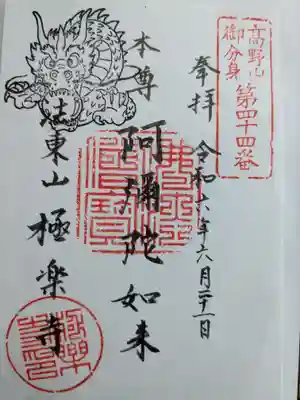 髙野山
御分身
第四十四番
奉拝 令和六年六月二十一日
本尊 阿彌陀如来
東山 極楽寺